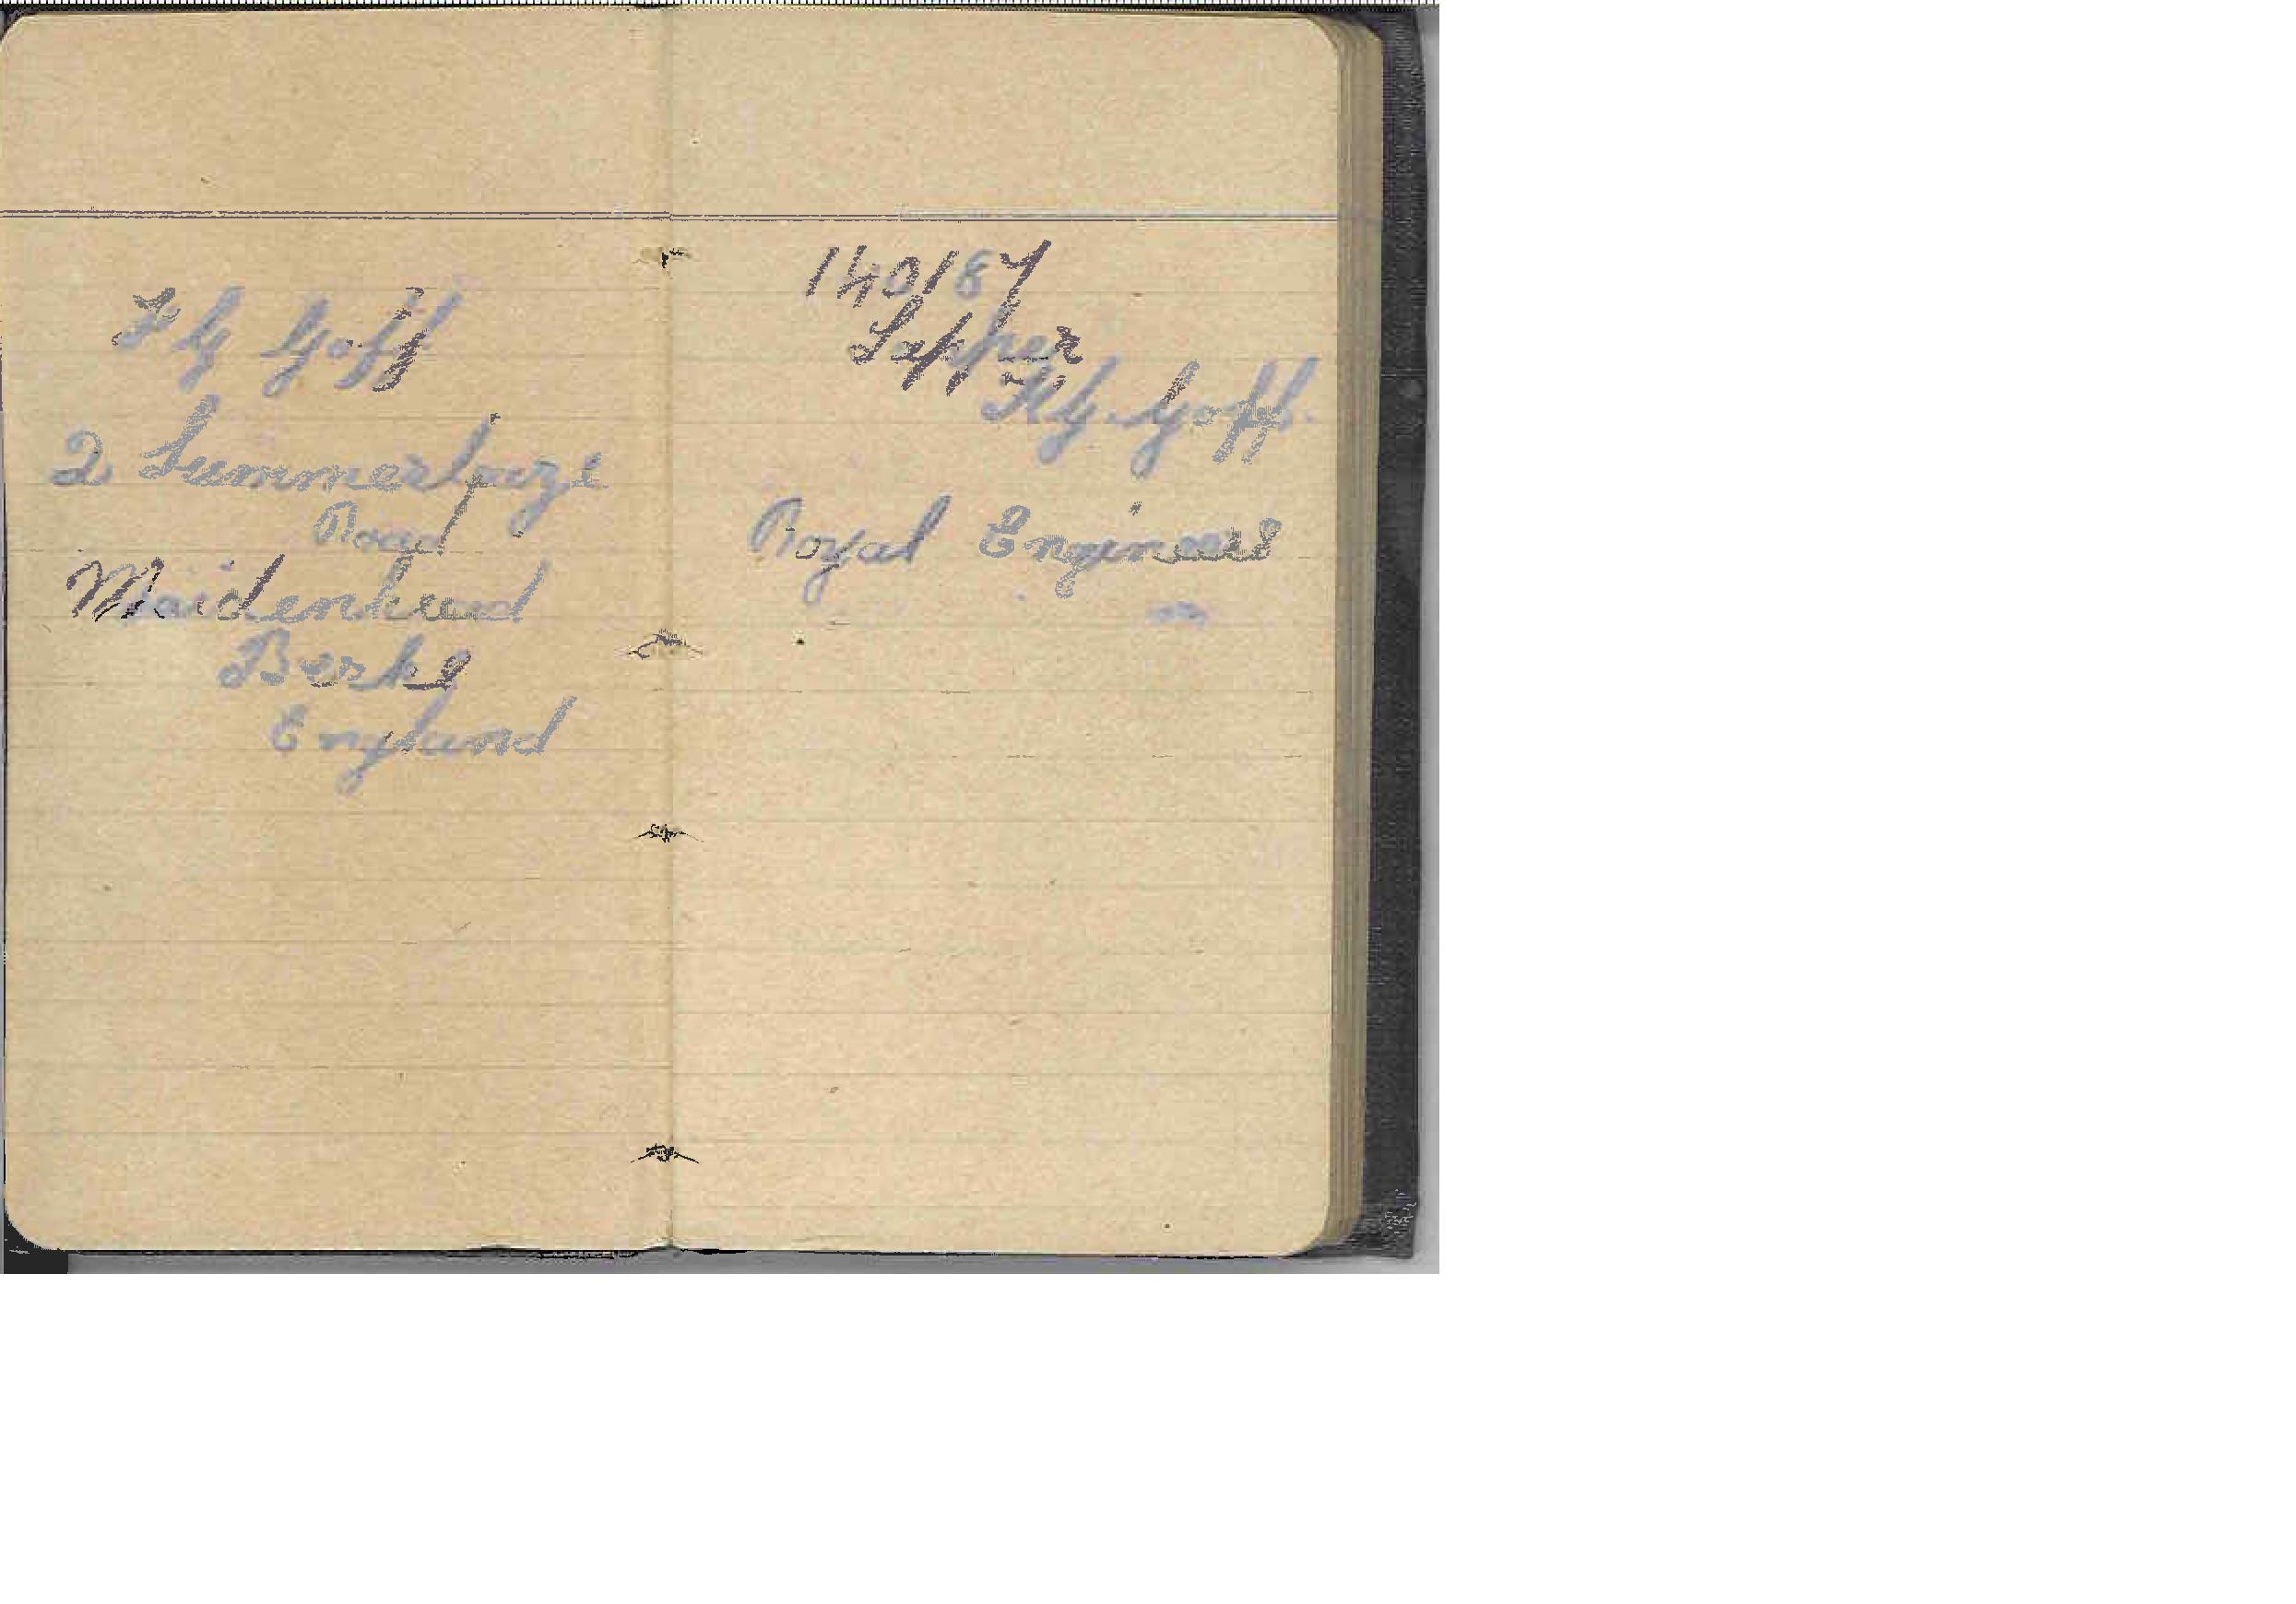 F G Goff
2 Summerleaze
Road
Maidenhead
Berks
England
140187
Sapper
F.G. Goff.
Royal Engineers